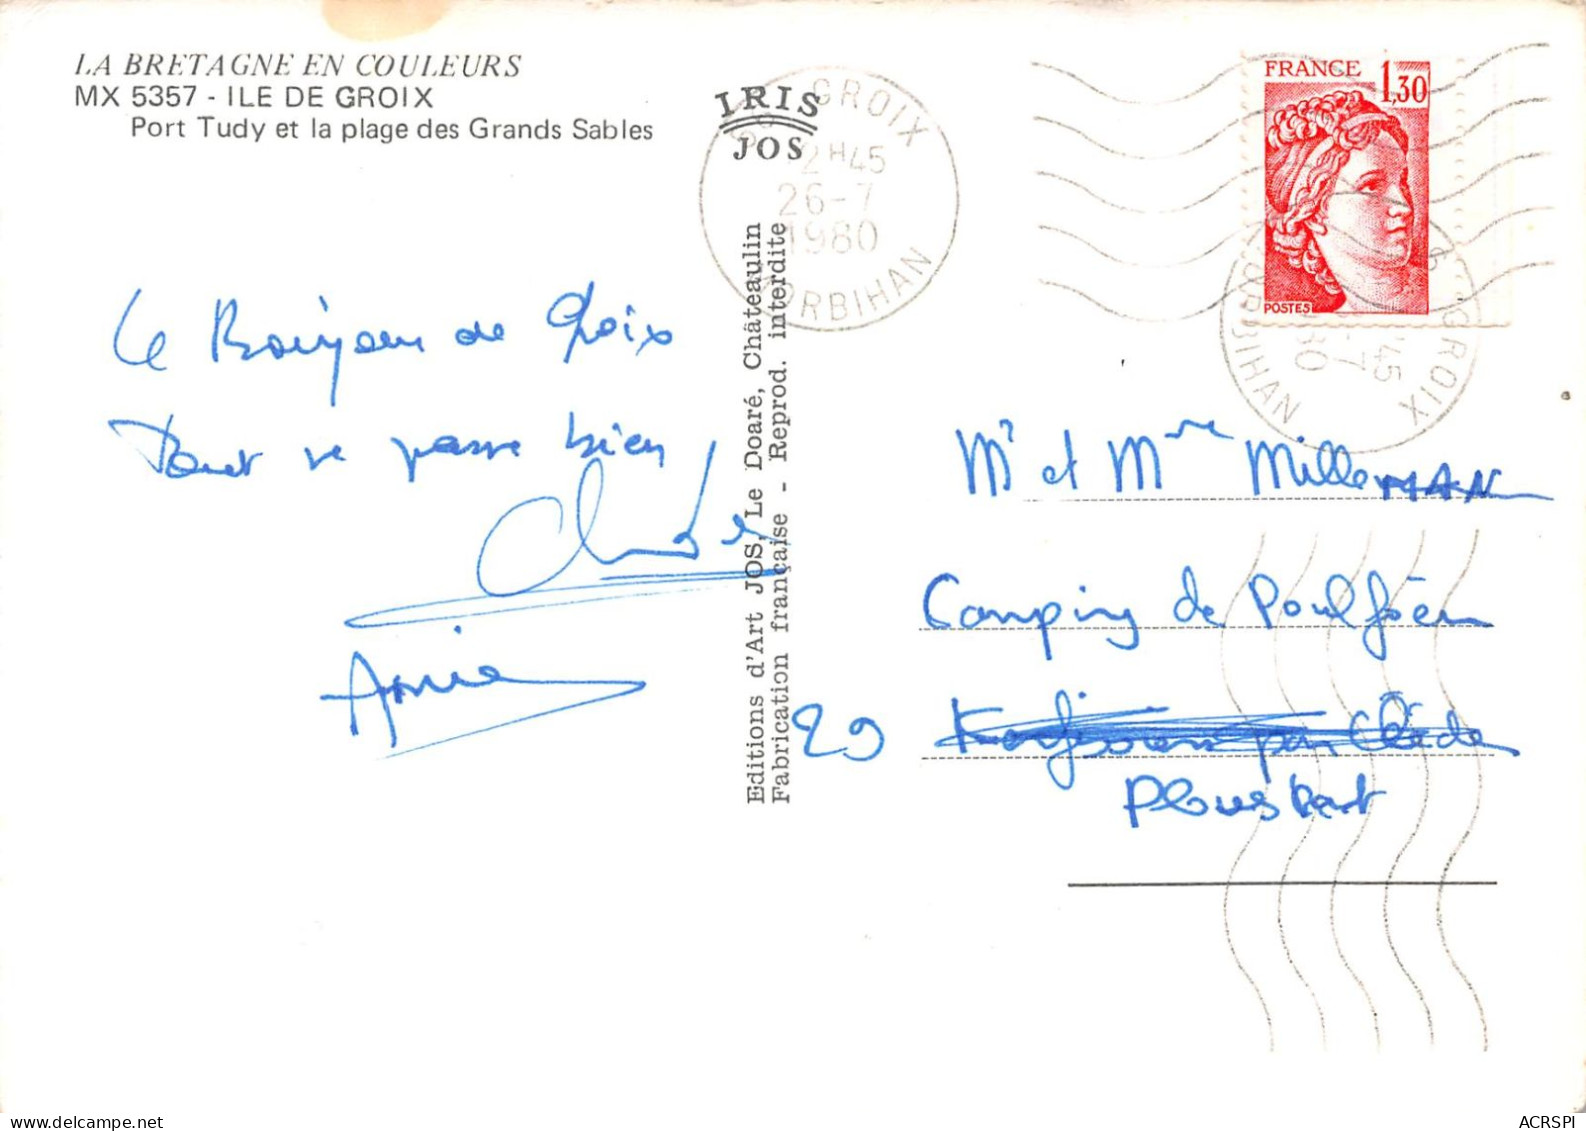 LA BRETAGNE EN COULEURS
MX 5357 - ILE DE GROIX
Port Tudy et la plage des Grands Sables
IRIS
JOS
56 GROIX
12H45
26-7
1980
MORBIHAN
FRANCE 1,30
POSTES
Le Bonjour de Groix
Tout se passe bien
Annie
Editions d'Art JOS, Le Doaré, Châteaulin
Fabrication française - Reprod. interdite
Mr et Mme MilleMAN
Camping de Poulfoën
29
Plouskat
56 GROIX
45
-7
80
ORBIHAN
ACRSPI